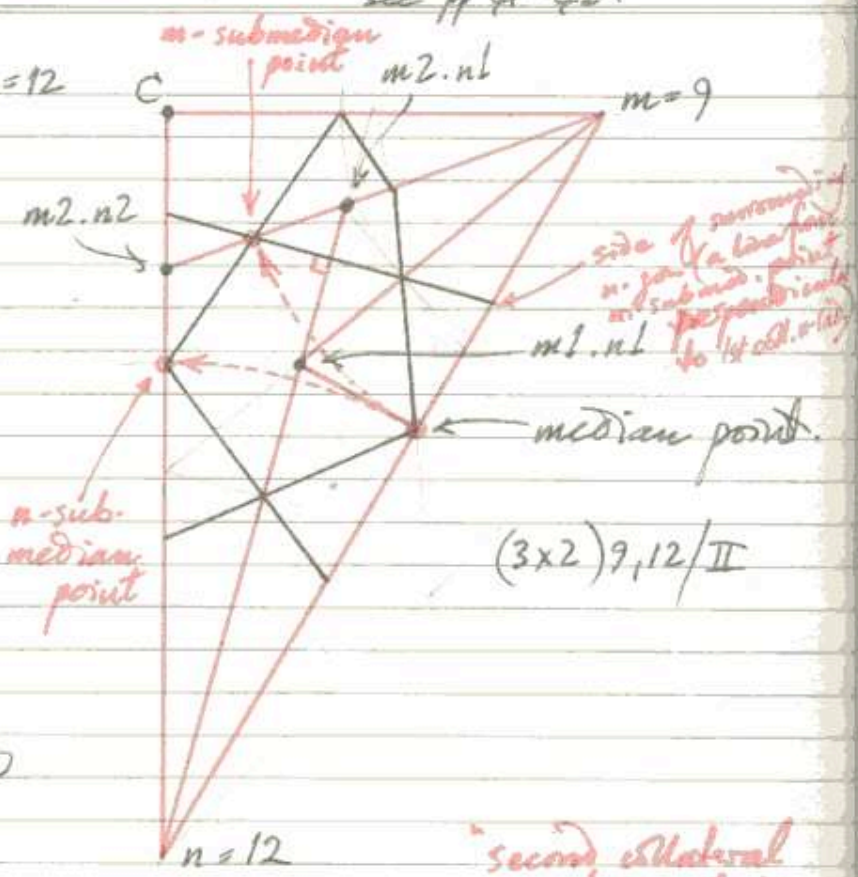 see pp
m-submedian
point
m2.n1
=12
C
m=9
m2.n2
side of surrounding
n-gon
m-submed. point
perpendicular
to 1st coll.
m1.n1
median point.
n-sub-
median
point
(3×2)9,12/II
n=12
"second collateral